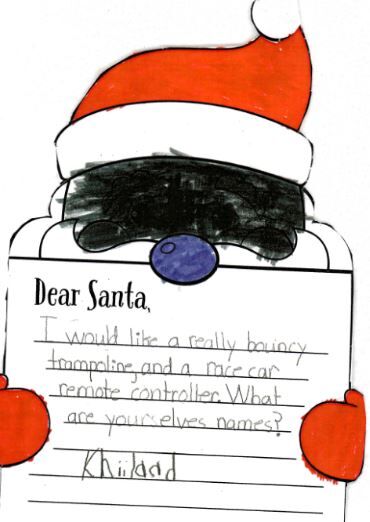 Dear Santa,
I would like a really bouncy
trampoline, and a race car
remote controller. What
are yourselves names?
Khiilaad